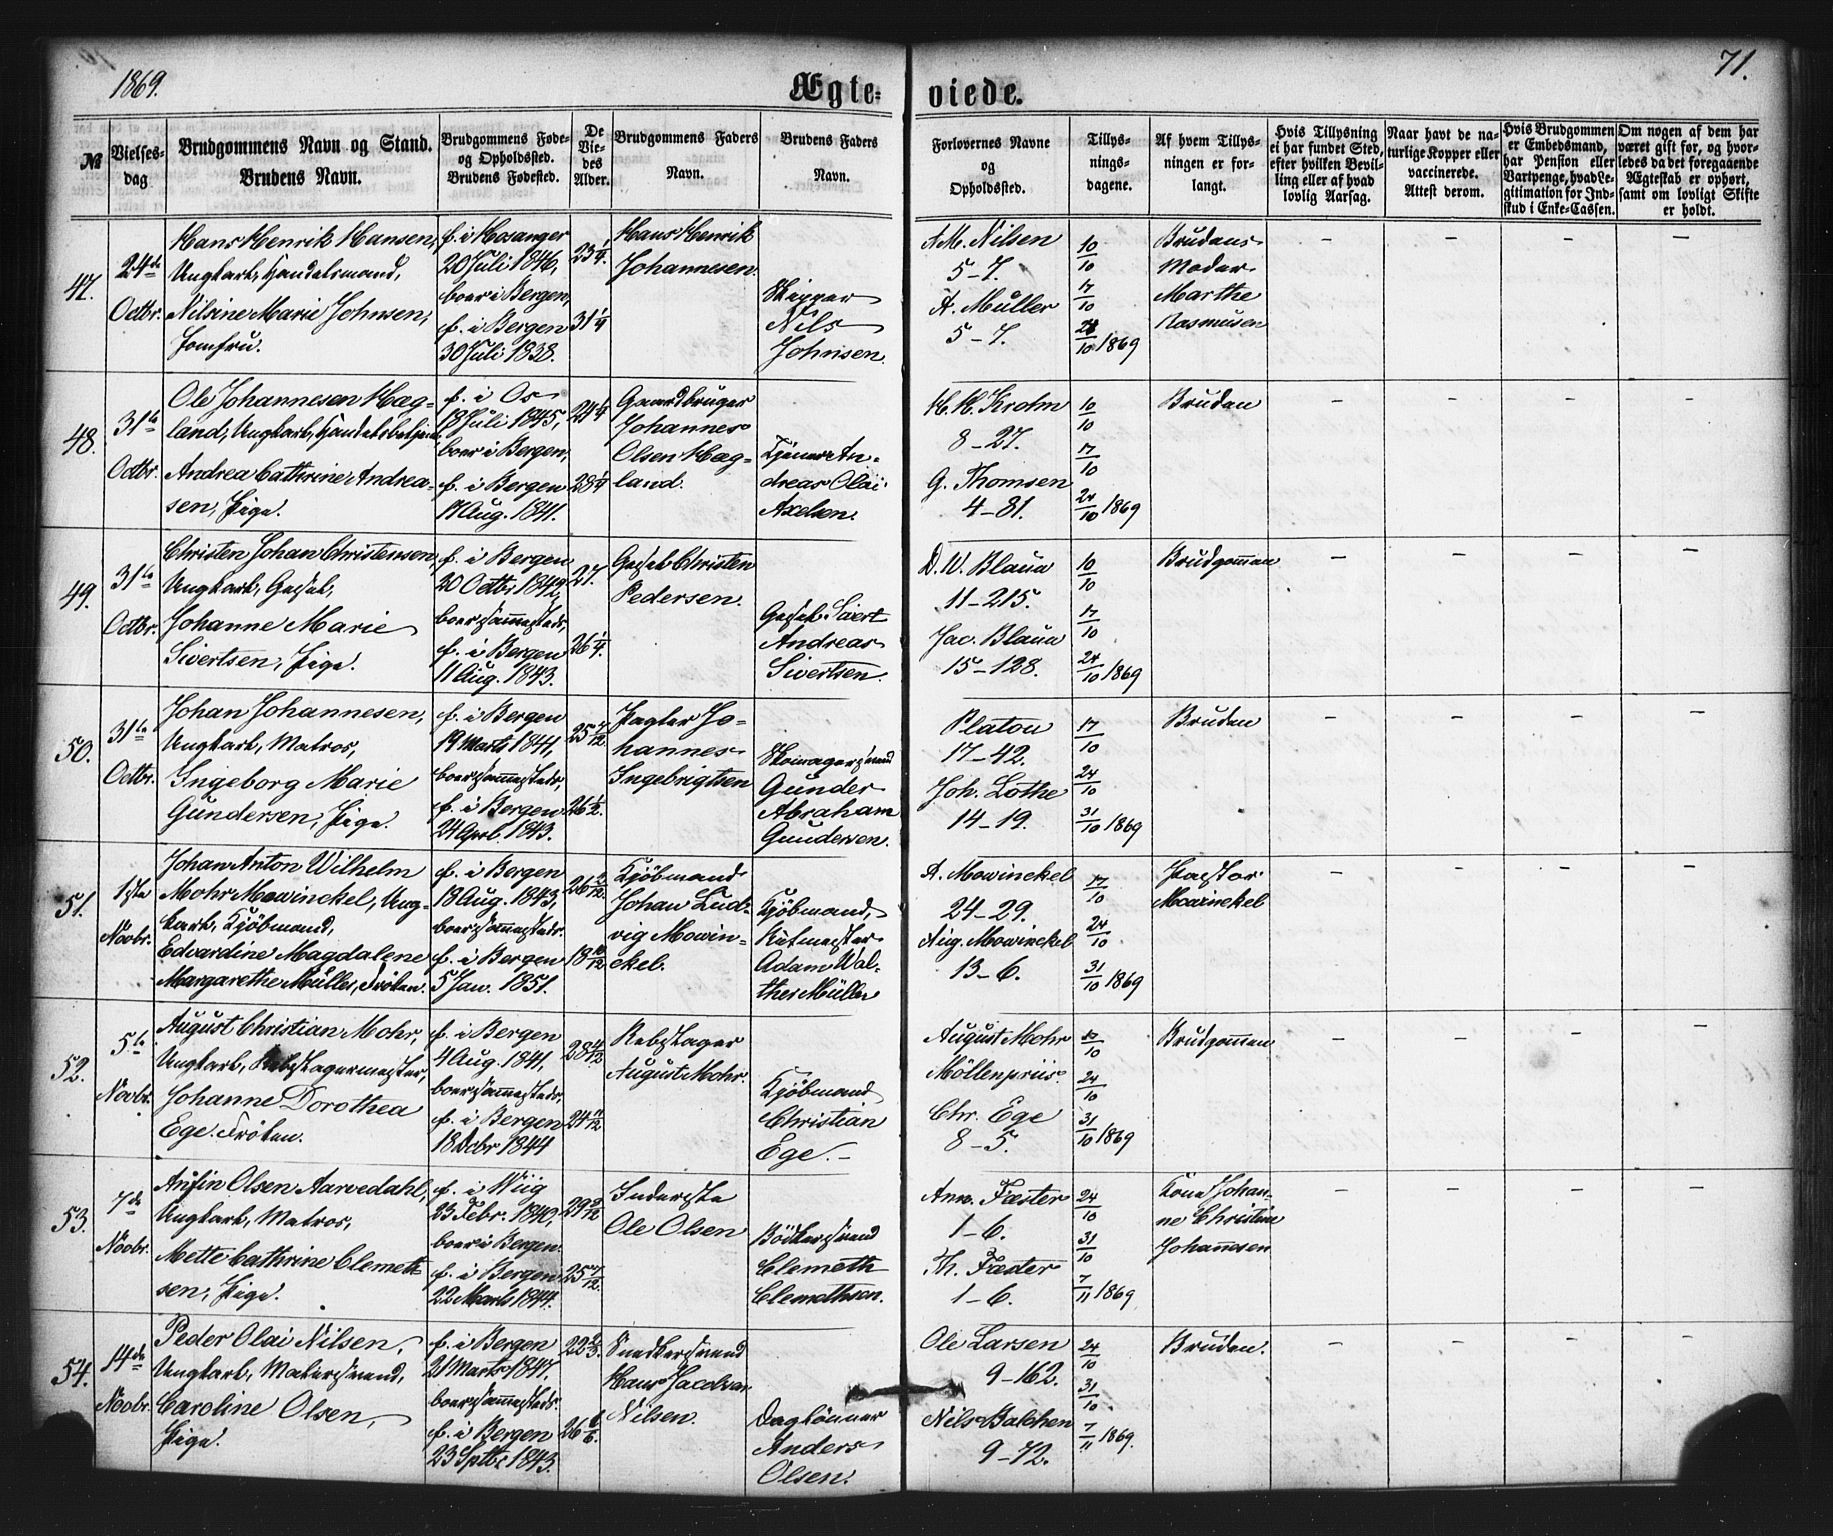 1869.
Ægte=
viede.
71.
№
Vielses-
dag
Brudgommens Navn og Stand.
Brudens Navn.
Brudgommens Føde-
og Opholdssted.
Brudens Fødested.
De
Vie-
des
Alder.
Brudgommens Faders
Navn.
Brudens Faders
Navn.
Forlovernes Navne
og
Opholdssted.
Tillys-
nings-
dagene.
Af hvem Tillys-
ningen er for-
langt.
Hvis Tillysning
ei har fundet Sted,
efter hvilken Bevil-
ling eller af hvad
lovlig Aarsag.
Naar havt de na-
turlige Kopper eller
vaccinerede.
Attest derom.
Hvis Brudgommen
er Embedsmand,
har Pension eller
Vartpenge, hvad Le-
gitimation for Ind-
skud i Enke-Cassen.
Om nogen af dem har
været gift for, og hvor-
ledes da det foregaaende
Ægteskab er ophørt,
samt om lovligt Skifte
er holdt.
47.
24de
Octbr.
Hans Henrik Hansen,
Ungkarl, Handelsmand,
Nilsine Marie Johnsen,
Jomfru.
f. i Hosanger
20 Juli 1846,
boer i Bergen,
f. i Bergen
30 Juli 1838.
23 1/4
31 1/4
Hans Henrik
Johannesen.
Skipper
Nils
Johnsen.
A. M. Nilsen
5-7.
A. Müller
5-7.
10/10
17/10
24/10 1869
Brudens
Moder
Marthe
Rasmusen
- - - -
48.
31te
Octbr.
Ole Johannesen Hæg-
land, Ungkarl, Handelsbetjent
Andrea Cathrine Andrea-
sen, Pige.
f. i Os
18 Juli 1845,
boer i Bergen,
f. i Bergen
17 Aug. 1841.
24 1/4
28 1/4
Gaardbruger
Johannes
Olsen Hæg-
land.
Tjener An-
dreas Olai
Axelsen.
H. H. Krohn
8-27.
G. Thomsen
4-81.
10/10
17/10
24/10 1869
Bruden
- - - -
49.
31te
Octbr.
Christen Johan Christensen
Ungkarl, Gesel,
Johanne Marie
Sivertsen, Pige.
f. i Bergen
20 Octbr 1842,
boer sammesteds,
f. i Bergen
11 Aug. 1843.
27.
26 1/4.
Gesel Christen
Pedersen.
Gesel Sivert
Andreas
Sivertsen.
D. W. Blauw
11-215.
Jac. Blauw
15-128.
10/10
17/10
24/10 1869
Brudgommen
- - - -
50.
31te
Octbr.
Johan Johannesen,
Ungkarl, Matros,
Ingeborg Marie
Gundersen, Pige.
f. i Bergen
19 Marts 1844,
boer sammesteds,
f. i Bergen
24 April 1843.
25 7/12.
26 1/2.
Fagter Jo-
hannes
Ingebrigtsen
Skomagersvend
Gunder
Abraham
Gundersen.
Platou
17-42.
Joh. Lothe
14-19.
17/10
24/10
31/10 1869
Bruden
- - - -
51.
1ste
Novbr.
Johan Anton Wilhelm
Mohr Mowinckel, Ung-
karl, Kjöbmand,
Edvardine Magdalene
Margarethe Müller, Fröken.
f. i Bergen
18 Aug. 1843,
boer sammesteds.
f. i Bergen
5 Jan. 1851.
26 2/12.
18 10/12
Kjöbmand
Johan Lud-
vig Mowin-
ckel.
Kjöbmand,
Ritmester
Adam Wal-
ther Müller
A. Mowinckel
24-29.
Aug. Mowinckel
13-6.
17/10
24/10
31/10 1869
Pastor
Mowinckel
- - - -
52.
5te
Novbr.
August Christian Mohr,
Ungkarl, Rebslagermester,
Johanne Dorothea
Ege. Fröken.
f. i Bergen
4 Aug. 1841,
boer sammesteds,
f. i Bergen
18 Dcbr 1844
28 2/12
24 11/12.
Rebslager
August Mohr.
Kjöbmand
Christian
Ege.-
August Mohr
Möllenpriis.
Chr. Ege
8-5.
17/10
24/10
31/10 1869
Brudgommen
- - - -
53.
7de
Novbr.
Anfin Olsen Aarvedahl,
Ungkarl, Matros,
Mette Cathrine Clemet-
sen, Pige.
f. i Wiig
23 Febr. 1840,
boer i Bergen.
f. i Bergen
22 Marts 1844.
29 9/12
25 7/12.
Inderste
Ole Olsen
Bödkersvend
Clemeth
Clemethsen.
Ann. Fæster
1-6.
Th. Fæster
1-6.
24/10
31/10
7/11 1869
Kone Johan-
ne Christine
Johannesen
- - - -
54.
14de
Novbr.
Peder Olai Nilsen,
Ungkarl, Malersvend,
Caroline Olsen,
Pige.
f. i Bergen
21 Marts 1847.
boer sammesteds.
f. i Bergen
23 Sptbr 1843.
22 2/3.
26 1/6.
Snedkersvend
Hans Jacobsen
Nilsen.
Daglönner
Anders
Olsen.
Ole Larsen
9-162.
Nils Balchen
9-72.
24/10
31/10
7/11 1869.
Bruden.
- - - -